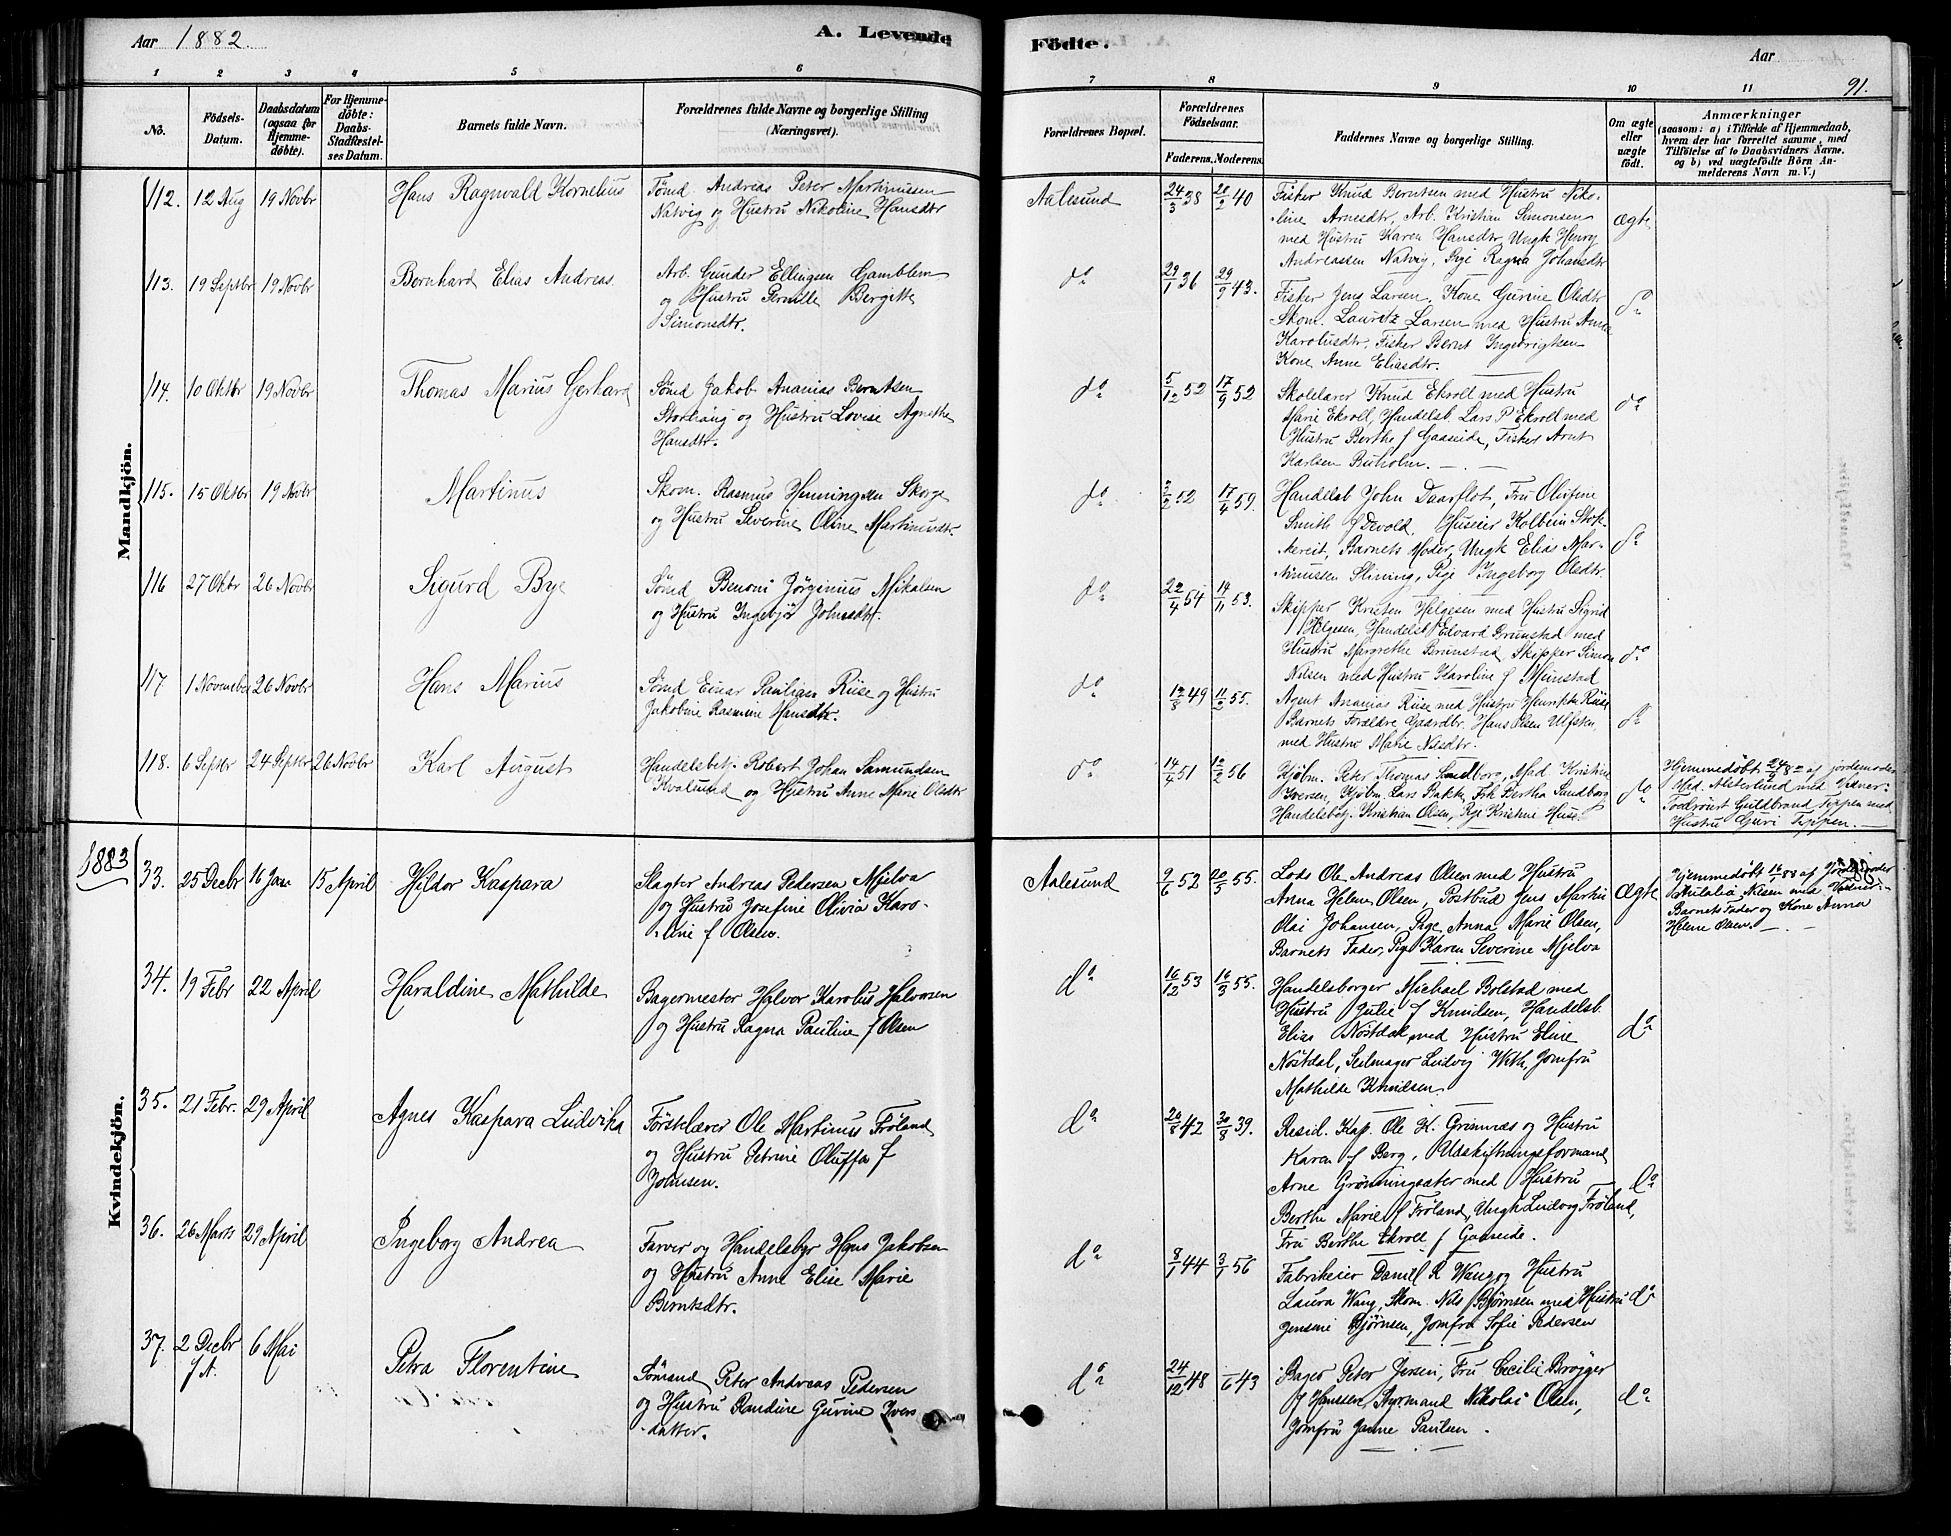 Aar 1882.
A. Levende
Födte.
Aar
91.
1 2 3 4 5 6 7 8 9 10 11
No.
Födsels-
Datum.
Daabsdatum
(ogsaa for
Hjemme-
döbte).
For Hjemme-
döbte:
Daabs-
Stadfæstel-
ses Datum.
Barnets fulde Navn.
Forældrenes fulde Navne og borgerlige Stilling
(Næringsvei).
Forældrenes Bopæl.
Forældrenes
Födselsaar.
Faderens. Moderens.
Faddernes Navne og borgerlige Stilling.
Om ægte
eller
uægte
födt.
Anmærkninger
(saasom: a) i Tilfælde af Hjemmedaab,
hvem der har forrettet samme, med
Tilföielse af to Daabsvidners Navne.
og b) ved uægtefödte Börn An-
melderens Navn m. V.)
Mandkjön.
112. 12 Aug 19 Novbr
Hans Ragnvald Kornelius
Sömd Andreas Peter Martinusen
Natvig og Hustru Nikoline Hansdtr
Aalesund
24/3 38 20/2 40
Fisker Knud Berntsen med Hustru Niko-
line Arnesdtr, Arb. Kristian Simonsen
med Hustru Karen Hansdtr, Ungk Henry
Andreassen Natvig, Pige Ragna Johansdtr
ægte
113. 19 Septbr 19 Novbr
Bernhard Elias Andreas
Arb. Gunder Ellingsen Gamblem
og Hustru Pernille Bergitte
Simonsdtr.
do
29/1 36 29/9 43.
Fisker Jens Larsen, Kone Gurine Olsdtr
Skom. Lauritz Larsen med Hustru Anna
Karolusdtr. Fisker Bernt Ingebrigtsen
Kone Anne Eliasdtr.
do
114. 10 Oktbr 19 Novbr
Thomas Marius Gerhard
Sömd Jakob Ananias Berntsen
Storhaug og Hustru Lovise Agnethe
Hansdtr.
do
5/12 52 17/9 52
Skolelærer Knud Ekroll med Hustru
Marie Ekroll, Handelsb. Lars P. Ekroll med
Hustru Berthe f Gaaseide, Fisker Arnt
Karlsen Buholm.
do
115. 15 Oktbr 19 Novbr
Martinus
Skom. Rasmus Henningsen Skorge
og Hustru Severine Oline Martinusdtr.
do
52 17/4 59.
Handelsb John Daarflot, Fru Olufine
Smith f Devold, Huseier Kolbein Stok-
kereit, Barnets Moder, Ungk Elias Mar-
tinussen Slining, Pige Ingeborg Olsdtr.
do
116 27 Oktbr 26 Novbr
Sigurd Bye
Sömd Benoni Jörginius Mikalsen
og Hustru Ingebjör Johnsdtr.
do
22/4 54 14/11 53.
Skipper Kristen Helgesen med Hustru Sigrid
Helgesen, Handelsb Edvard Brunstad med
Hustru Margrethe Brunstad, Skipper Simon
Nilsen med Hustru Karoline f Meinstad
do
117 1 November 26 Novbr
Hans Marius
Sömd Einar Paulian Riise og Hustru
Jakobine Rasmine Hansdtr.
do
49 11/2 55.
Agent Ananias Riise med Hustru Henrikke Riise
Barnets Forældre Gaardbr. Hans Olsen Ulfsten,
med Hustru Marie Nilsdtr.
do
118. 6 Septbr 24 Septbr 26 Novbr
Karl August
Handelsbetj. Robert Johan Samundsen
Kvalsund og Hustru Anne Marie Olsdtr
do
14/4 51 12/2 56
Kjöbm. Peter Thomas Sundborg, Mad. Kristine
Iversen, Kjöbm Lars Bakke, Frk Bertha Sundborg
Handelsbetj. Kristian Olsen, Pige Kristine Huse
do
Hjemmedöbt 24/9 82 af Jordemoder
Mad. Alsterlund med Vidner:
Guldbrand Tippen med
Hustru Guri Tippen.
1883
Kvindekjön.
33. 25 Decbr 16 Jan 15 April
Hildor Kaspara
Slagter Andreas Pedersen Mjelva
og Hustru Josefine Olivia Karo-
line f Olsen.
Aalesund
9/6 52 20/5 55.
Lods Ole Andreas Olsen med Hustru
Anna Helene Olsen, Postbud Jens Martin
Olai Johansen, Pige Anna Marie Olsen,
Barnets Fader, Pige Karen Severine Mjelva
ægte
Hjemmedöbt 16/1 83 af Jordemoder
Nilsen med Vidner:
Barnets Fader og Kone Anna
Helene Olsen.
34. 19 Febr 22 April
Haraldine Mathilde
Bagermester Halvor Karolus Halvorsen
og Hustru Ragna Pauline f Olsen
do
16/12 53 16/3 55.
Handelsborger Michael Bolstad med
Hustru Julie f Knudsen, Handelsb.
Elias Nöstdal med Hustru Eline
Nöstdal, Seilmager Ludvig With, Jomfru
Mathilde Knudsen.
do
35. 21 Febr. 29 April
Agnes Kaspara Ludvika
Förstelærer Ole Martinus Fröland
og Hustru Petrine Oluffa f
Johnsen.
do
20/8 42 30/8 39.
Resid. Kap. Ole K. Grimnæs og Hustru
Karen f Berg, Udskiftningsformand
Arne Grönningsæter med Hustru
Berthe Marie f Fröland, Ungk Ludvig Fröland,
Fru Berthe Ekroll f Gaaseide.
do
36. 26 Marts 29 April
Ingeborg Andrea
Farver og Handelsbgr Hans Jakobsen
og Hustru Anne Elise Marie
Berntsdtr.
do
8/1 44 3/1 56
Fabrikeier Daniel R Wang og Hustru
Laura Wang, Skom. Nils Björnsen med Hustru
Jensine Björnsen, Jomfru Sofie Pedersen
do
37. 2 Decbr f.A. 6 Mai
Petra Florentine
Sömand Peter Andreas Pedersen
og Hustru Randine Gurine Ivers-
datter.
do
24/12 48 /6 43
Bager Peter Jersin, Fru Cecilie Brøgger
f Hanssen, Styrmand Nikolai Olsen,
Jomfru Janne Paulsen.
do